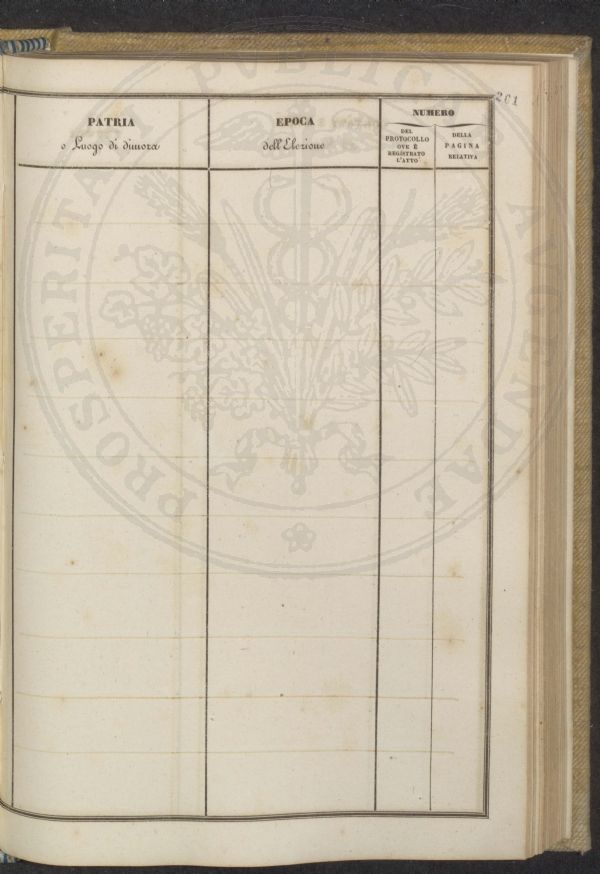 201
PATRIA
o Luogo di dimora
EPOCA
dell'Elezione
NUMERO
DEL
PROTOCOLLO
OVE È
REGISTRATO
L'ATTO
DELLA
PAGINA
RELATIVA
PROSPERITATI PUBLICAE AUGENDAE